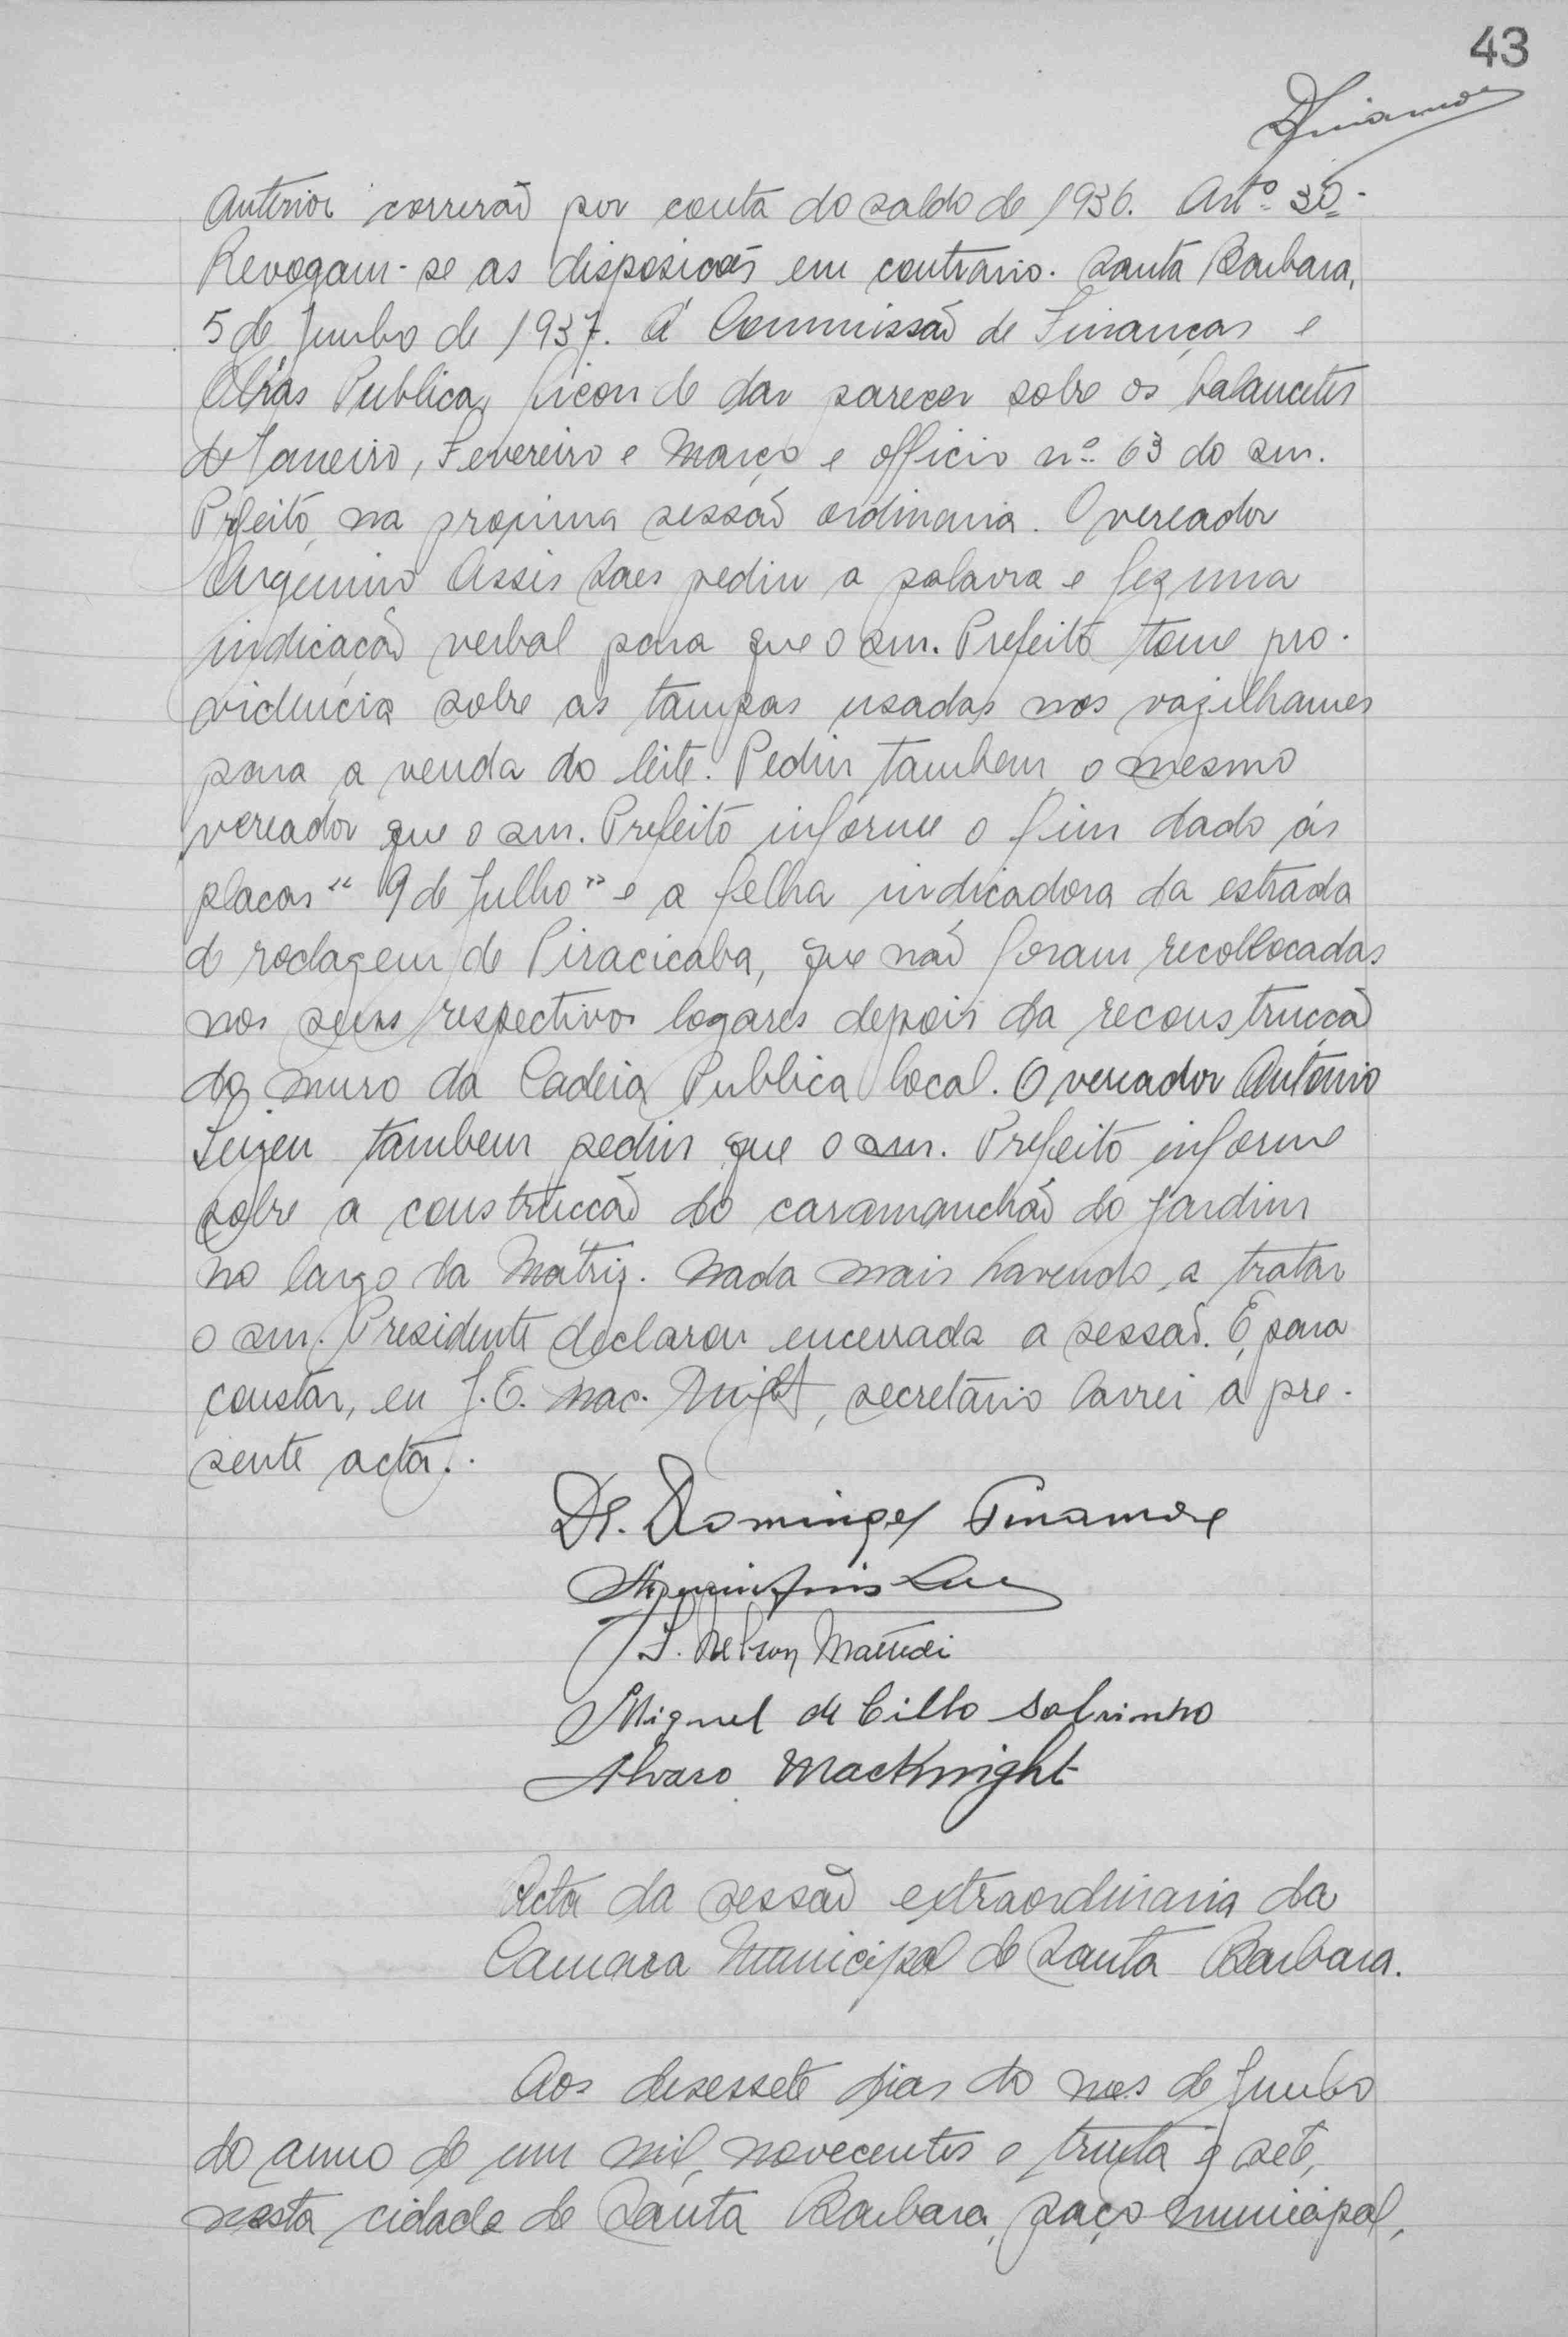 43
DFinamore
anterior correrão por conta do saldo de 1936. Artº 3º-
Revogam-se as disposicões em contrario. Santa Barbara,
5 de Junho de 1937. A' Commissão de Finanças e
Obras Publicas ficou de dar parecer sobre os balancetes
de Janeiro, Fevereiro e Março e officio nº 63 do snr.
Prefeito, na proxima sessão ordinaria. O vereador
Argemiro Assis Saes pediu a palavra e fez uma
indicação verbal para que o snr. Prefeito tome pro-
videncia sobre as tampas usadas nos vazilhames
para a venda do leite. Pediu tambem o mesmo
vereador que o snr. Prefeito informe o fim dado ás
placas "9 de Julho" e a folha indicadora da estrada
de rodagem de Piracicaba, que não foram recollocadas
nos seus respectivos logares depois da reconstrucção
do muro da Cadeia Publica local. O vereador Antonio
tambem pediu que o snr. Prefeito informe
sobre a construcção do caramanchão do jardim
no largo da Matriz. Nada mais havendo a tratar
o snr. Presidente declarou encerrada a sessão. E, para
constar, eu J. E. Mac-Knight, secretário lavrei a pre-
sente acta.
Dr. Domingos Finamore
J. Nelson
Miguel de Cillo Sobrinho
Alvaro MacKnight
Acta da sessão extraordinaria da
Camara Municipal de Santa Barbara.
Aos desessete dias do mes de Junho
do anno de um mil, novecentos e trinta e sete,
nesta cidade de Santa Barbara, paço municipal,